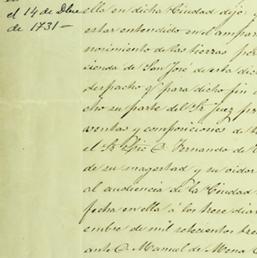 el 14 de Dbre
de 1731 —
ella en dicha Ciudad dijo y
estar entendido en el ampar
nocimiento de las tierras per
cienda de San José de esta dic
despacho y para dicho fin
cho su parte del Sr Juez pr
ventas y composiciones de
el Sr Lic. D. Fernando de
de su magestad y su oidor
al audiencia de la Ciudad
fecha en ella á los trece dia
embre de mil setecientos tre
ante D. Manuel de Mena